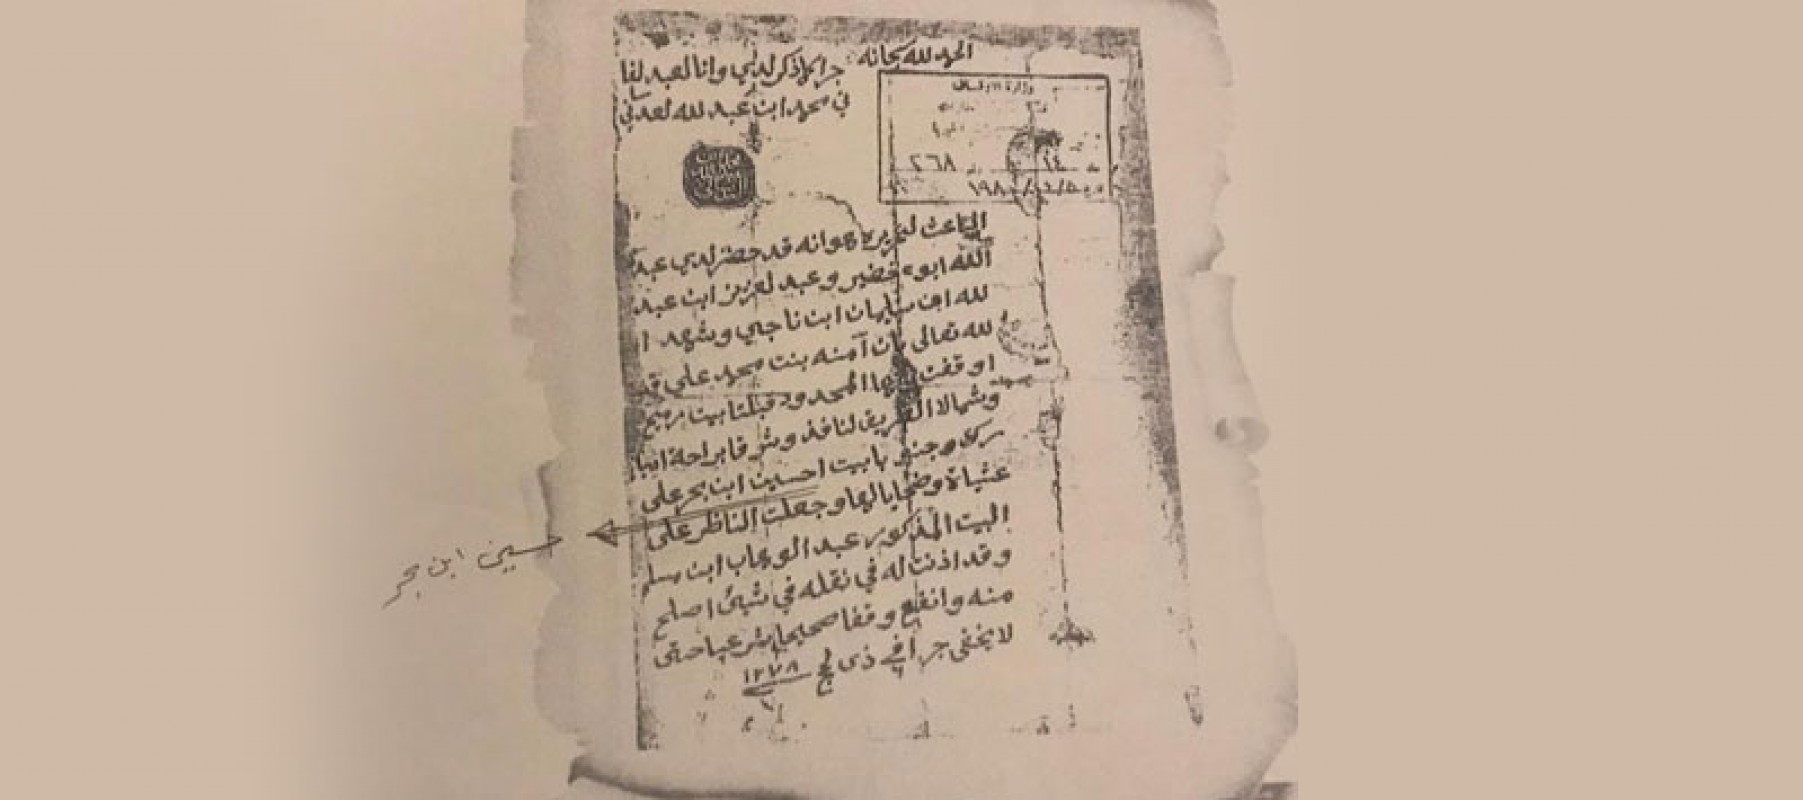 الحمد لله سبحانه
جرا ما ذكر لدي وانا العبد لفا
ني محمد ابن عبد لله لعدني
٢٦٨
الباعث لتحريره هوانه قد حضر لدي عبد
الله ابو خضير وعبد لعزيز ابن عبد
لله ابن سليمان ابن ناجي وشهد ا
لله تعالى بان آمنه بنت محمد علي قد
اوقفت المحدود قبلتا بيت بن
وشمالا الطريق لنافذ وشرقا براحة
وجنوبا بيت احسين ابن بحر على
عشياة وضحايا لها وجعلت الناظر على
البيت المذكور عبد الوهاب ابن
وقد اذنت له في نقله في شيئ اصلح
منه وانفع وقفا صحيحا شرعيا حتى
لا يخفى جرا في ذي لحج ١٢٧٨
حسين ابن بحر